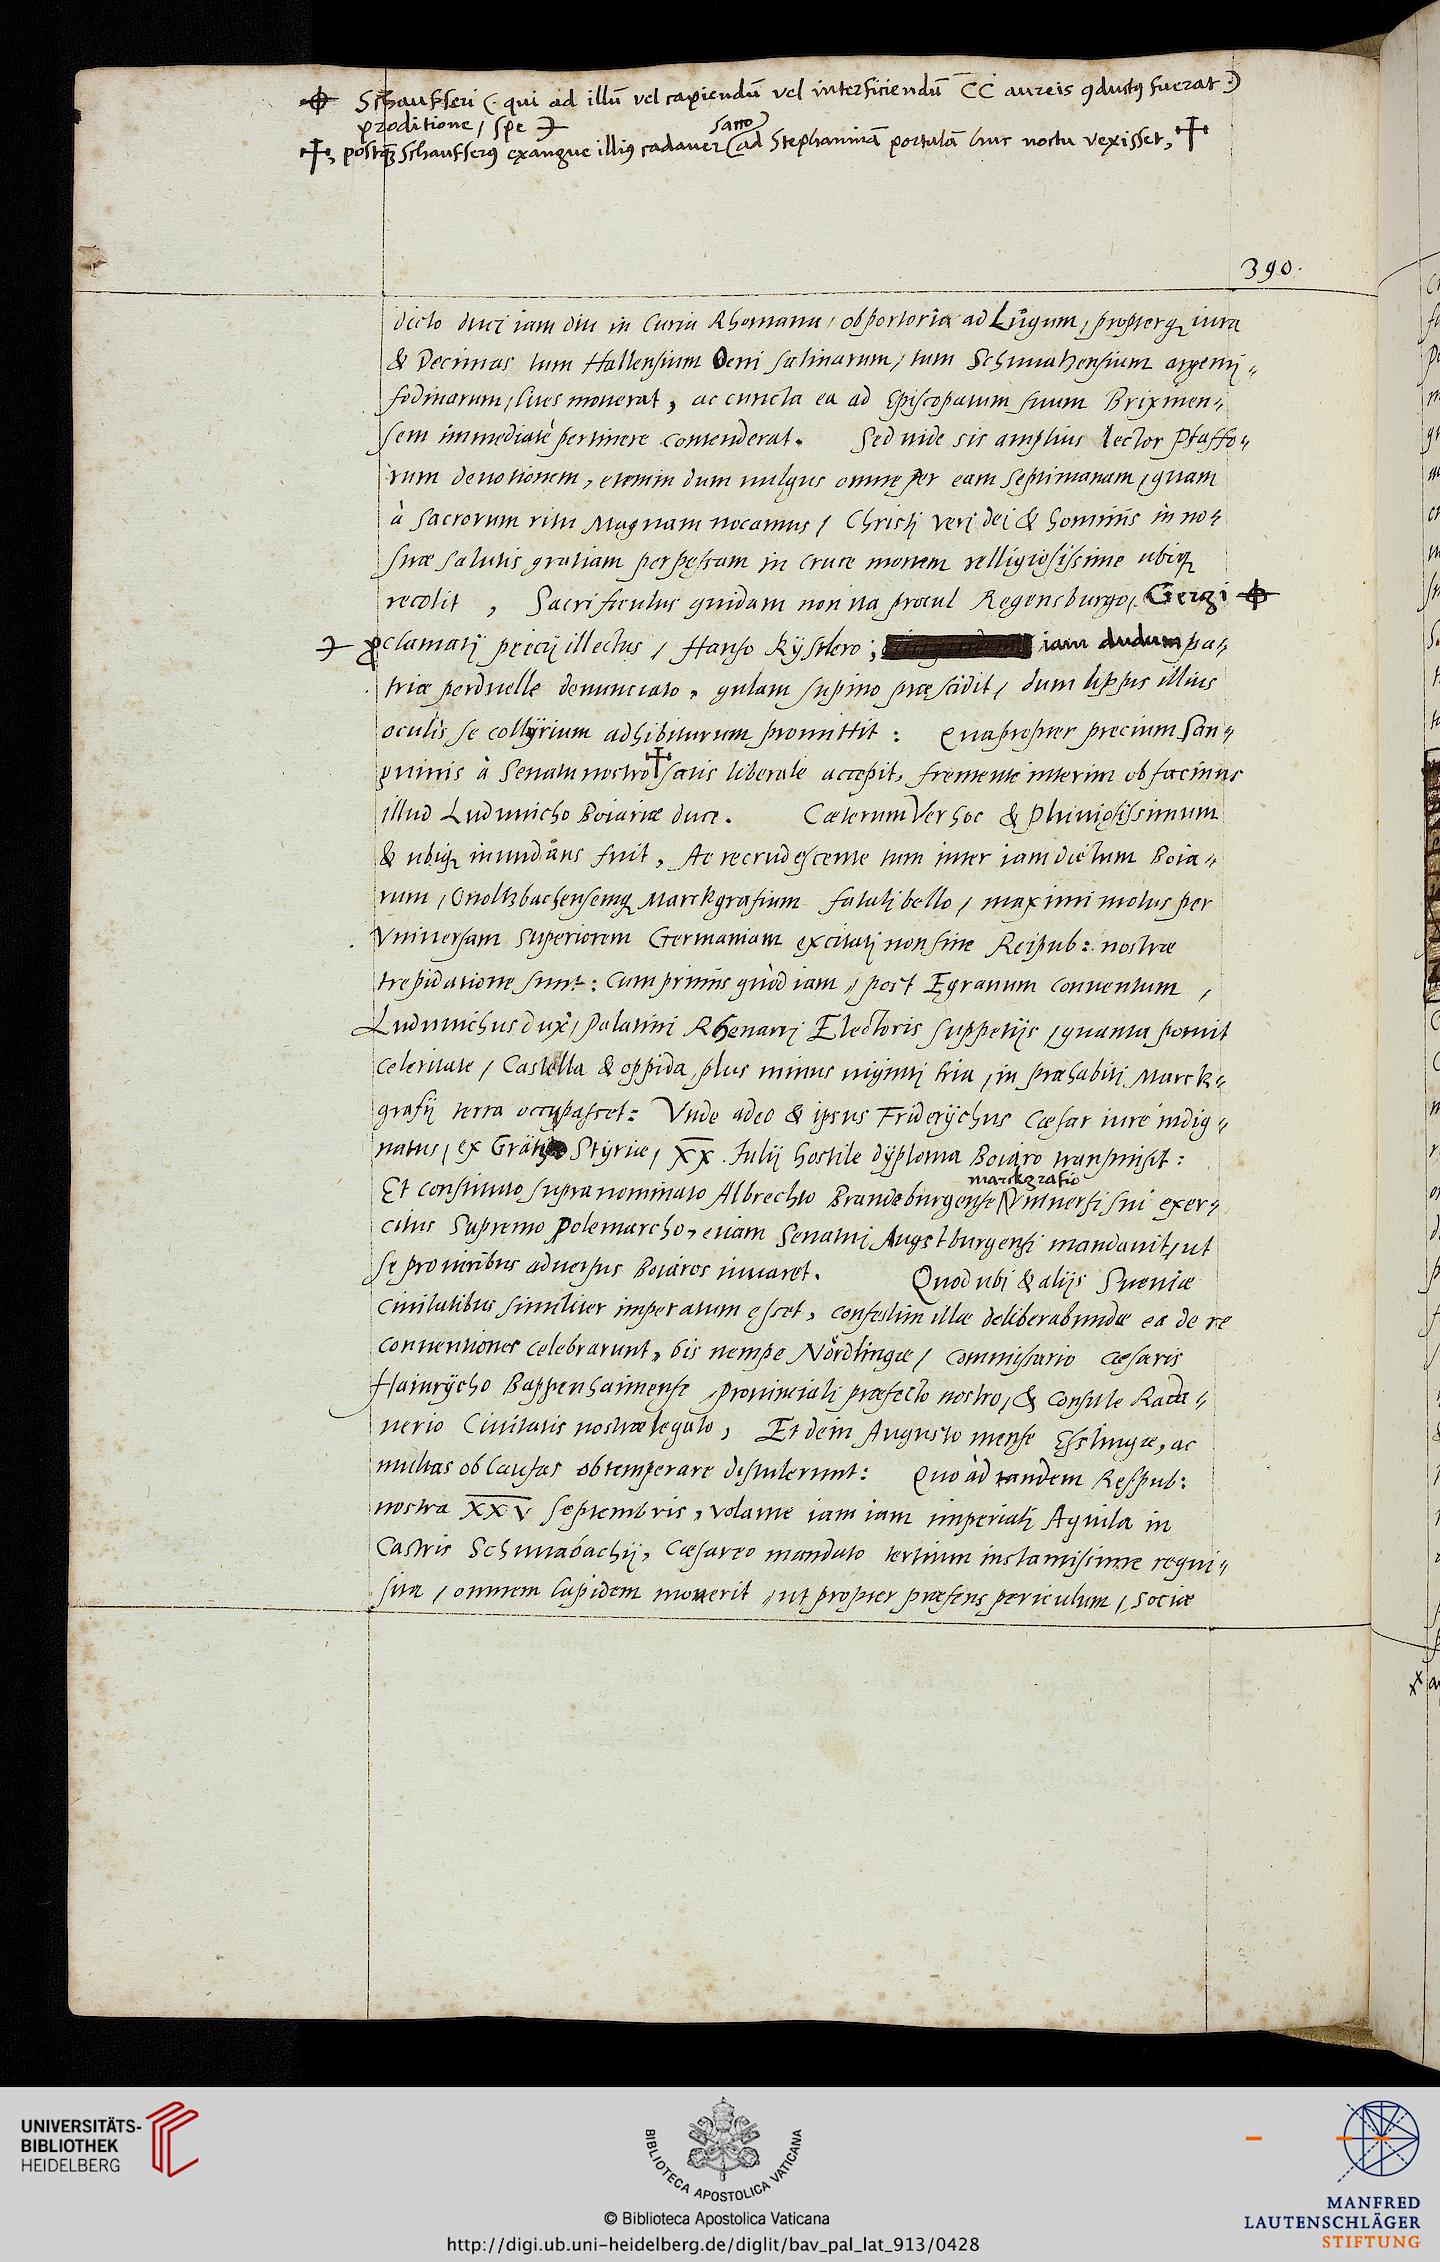 Schaufferi (· qui ad illũ vel capiendũ vel interficiendũ CC aureis ꝯductꝰ fuerat ·)
proditione / spe
, postqꝫ Schaufferꝰ exangue illiꝰ cadauer ad Stephaninã portulã huc noctu vexisset,
sacco
390.
dicto duci iam diu in Curia Rhomana, ob portoria ad Lůgum, propterqꝫ iura
& Decimas tum Hallensium Oeni salinarum, tum Schwatzensium argenti⸗
fodinarum, lites mouerat, ac cuncta ea ad Episcopatum suum Brixinen⸗
sem immediatè pertinere contenderat. Sed uide sis amplius lector Pfaffo⸗
rum deuotionem, etenim dum uulgus omne per eam septimanam, quam
à sacrorum ritu Magnam uocamus, Christi veri dei & hominis in no⸗
stræ salutis gratiam perpessam in cruce mortem relligiosissime ubiqꝫ
recolit, Sacrificulus quidam non ita procul Regensburgo, Gergi
proclamatij precij illectus, Hanso Kystlero; iam dudum pa⸗
triæ perduelle denunciato, gulam supino præscidit, dum lippis illius
oculis se collyrium adhibiturum promittit: Quapropter precium san⸗
guinis à Senatu nostro satis liberale accepit, fremente interim ob facinus
illud Ludwicho Boiariæ duce. Cæterum Ver hoc & Pluuiosissimum
& ubiqꝫ inundans fuit, Ac recrudescente tum inter iam dictum Boia⸗
rum, Onoltzbachensemqꝫ Marckgrafium fatali bello, maximi motus per
Vniuersam Superiorem Germaniam excitati non sine Reipub: nostræ
trepidatione sunt: cum primis quòd iam, post Egranum conuentum,
Ludwichus dux, Palatini Rhenani Electoris suppetijs, quanta potuit
celeritate, Castella & oppida plus minus uiginti tria, in præhabiti Marck⸗
grafij terra occupasset: Vnde adeo & ipsus Friderychus Cæsar iure indig⸗
natus, ex Grätz Styriæ, XX. Iulij hostile dyploma Boiaro transmisit:
marckgrafio
Et constituto supra nominato Albrechto Brandeburgense Vniuersi sui exer⸗
citus Supremo Polemarcho, etiam Senatui Augstburgensi mandauit, ut
se pro uiribus aduersus Boiaros iuuaret. Quod ubi & alijs Sueuiæ
Ciuitatibus similiter imperatum esset, confestim illæ deliberabundæ ea de re
conuentiones celebrarunt, bis nempe Nördlingæ, Commissario Cæsaris
Hainrycho Bappenhaimense, prouinciali præfecto nostro, & Consule Rada⸗
uerio Ciuitatis nostræ legato, Et dein Augusto mense Esslingæ, ac
multas ob causas obtemperare distulerunt: Quo ad tandem Respub:
nostra XXV Septembris, volante iam iam imperiali Aquila in
Castris Schwabachij, Cæsareo mandato tertium instantissime requi⸗
sita, omnem lapidem mouerit, ut propter præsens periculum, sociæ
UNIVERSITÄTS-
BIBLIOTHEK
HEIDELBERG
BIBLIOTECA APOSTOLICA VATICANA
© Biblioteca Apostolica Vaticana
http://digi.ub.uni-heidelberg.de/diglit/bav_pal_lat_913/0428
MANFRED
LAUTENSCHLÄGER
STIFTUNG